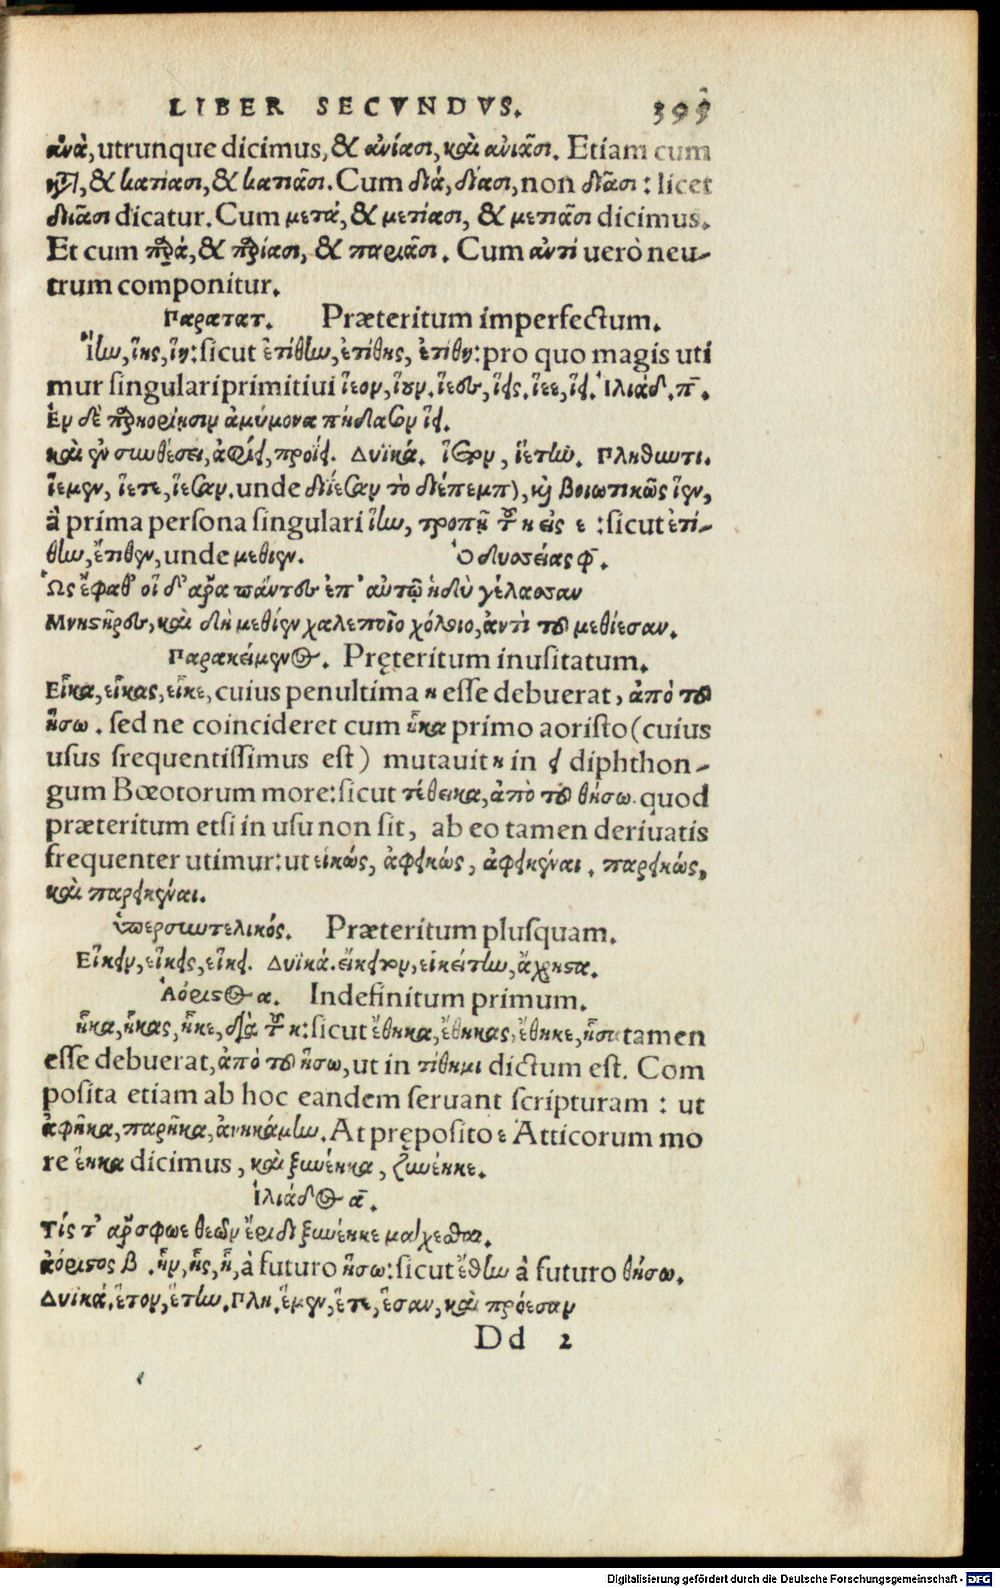 LIBER SECVNDVS. 395
ἀνὰ, utrunque dicimus, & ἀνίασι, καὶ ἀνιᾶσι. Etiam cum
κτ, & κατίασι, & κατιᾶσι. Cum διά, δίασι, non διᾶσι: licet
διιᾶσι dicatur. Cum μετά, & μετίασι, & μετιᾶσι dicimus.
Et cum παρά, & παρίασι, & παριᾶσι. Cum ἀντὶ uerò neu-
trum componitur.
Παρατατ. Præteritum imperfectum.
ἵην, ἵης, ἵη: sicut ἐτίθην, ἐτίθης, ἐτίθη: pro quo magis uti
mur singulari primitiui ἵεον, ἵουν. ἵεες, ἵεις. ἵεε, ἵει. Ἰλιάδ. π̄.
Ἐν δὲ παρηορίῃσιν ἀμύμονα πήδασον ἵει.
καὶ ἐν συνθέσει, ἀφίει, προΐει. Δυϊκά. ἵετον, ἱέτην. Πληθωτι.
ἵεμεν, ἵετε, ἵεσαν. unde δίεσαν τὸ διέπεμπον, καὶ Βοιωτικῶς ἵεν,
à prima persona singulari ἵην, τροπῇ τοῦ η εἰς ε: sicut ἐτί-
θην, ἔτιθεν, unde μέθιεν. Ὀδυσσείας φ̄.
Ὣς ἔφαθ' οἱ δ' ἄρα πάντες ἐπ' αὐτῷ ἡδὺ γέλασσαν
Μνηστῆρες, καὶ δὴ μεθίεν χαλεποῖο χόλοιο, ἀντὶ τοῦ μεθίεσαν.
Παρακείμενος. Pręteritum inusitatum.
Εἷκα, εἷκας, εἷκε, cuius penultima η esse debuerat, ἀπὸ τοῦ
ἥσω. sed ne coincideret cum ἧκα primo aoristo (cuius
usus frequentissimus est) mutauit η in ει diphthon-
gum Bœotorum more: sicut τέθεικα, ἀπὸ τοῦ θήσω. quod
præteritum etsi in usu non sit, ab eo tamen deriuatis
frequenter utimur: ut εἱκώς, ἀφεικώς, ἀφεικέναι. παρεικώς,
καὶ παρεικέναι.
ὑπερσυντελικός. Præteritum plusquam.
Εἵκειν, εἵκεις, εἵκει. Δυϊκά. εἵκειτον, εἱκείτην, ἄχρηστα.
Ἀόριστος α. Indefinitum primum.
ἧκα, ἧκας, ἧκε, διὰ τοῦ κ: sicut ἔθηκα, ἔθηκας, ἔθηκε, ἧσα tamen
esse debuerat, ἀπὸ τοῦ ἥσω, ut in τίθημι dictum est. Com
posita etiam ab hoc eandem seruant scripturam: ut
ἀφῆκα, παρῆκα, ἀνηκάμην. At pręposito ε Atticorum mo
re ἕηκα dicimus, καὶ ξυνέηκα, ξυνέηκε.
Ἰλιάδος ᾱ.
Τίς τ' ἄρ σφωε θεῶν ἔριδι ξυνέηκε μάχεσθαι.
ἀόριστος β. ἧν, ἧς, ἧ, à futuro ἥσω: sicut ἔθην à futuro θήσω.
Δυϊκά. ἕτον, ἕτην. Πλη. ἕμεν, ἕτε, ἕσαν, καὶ πρόεσαν
Dd 2
Digitalisierung gefördert durch die Deutsche Forschungsgemeinschaft - DFG